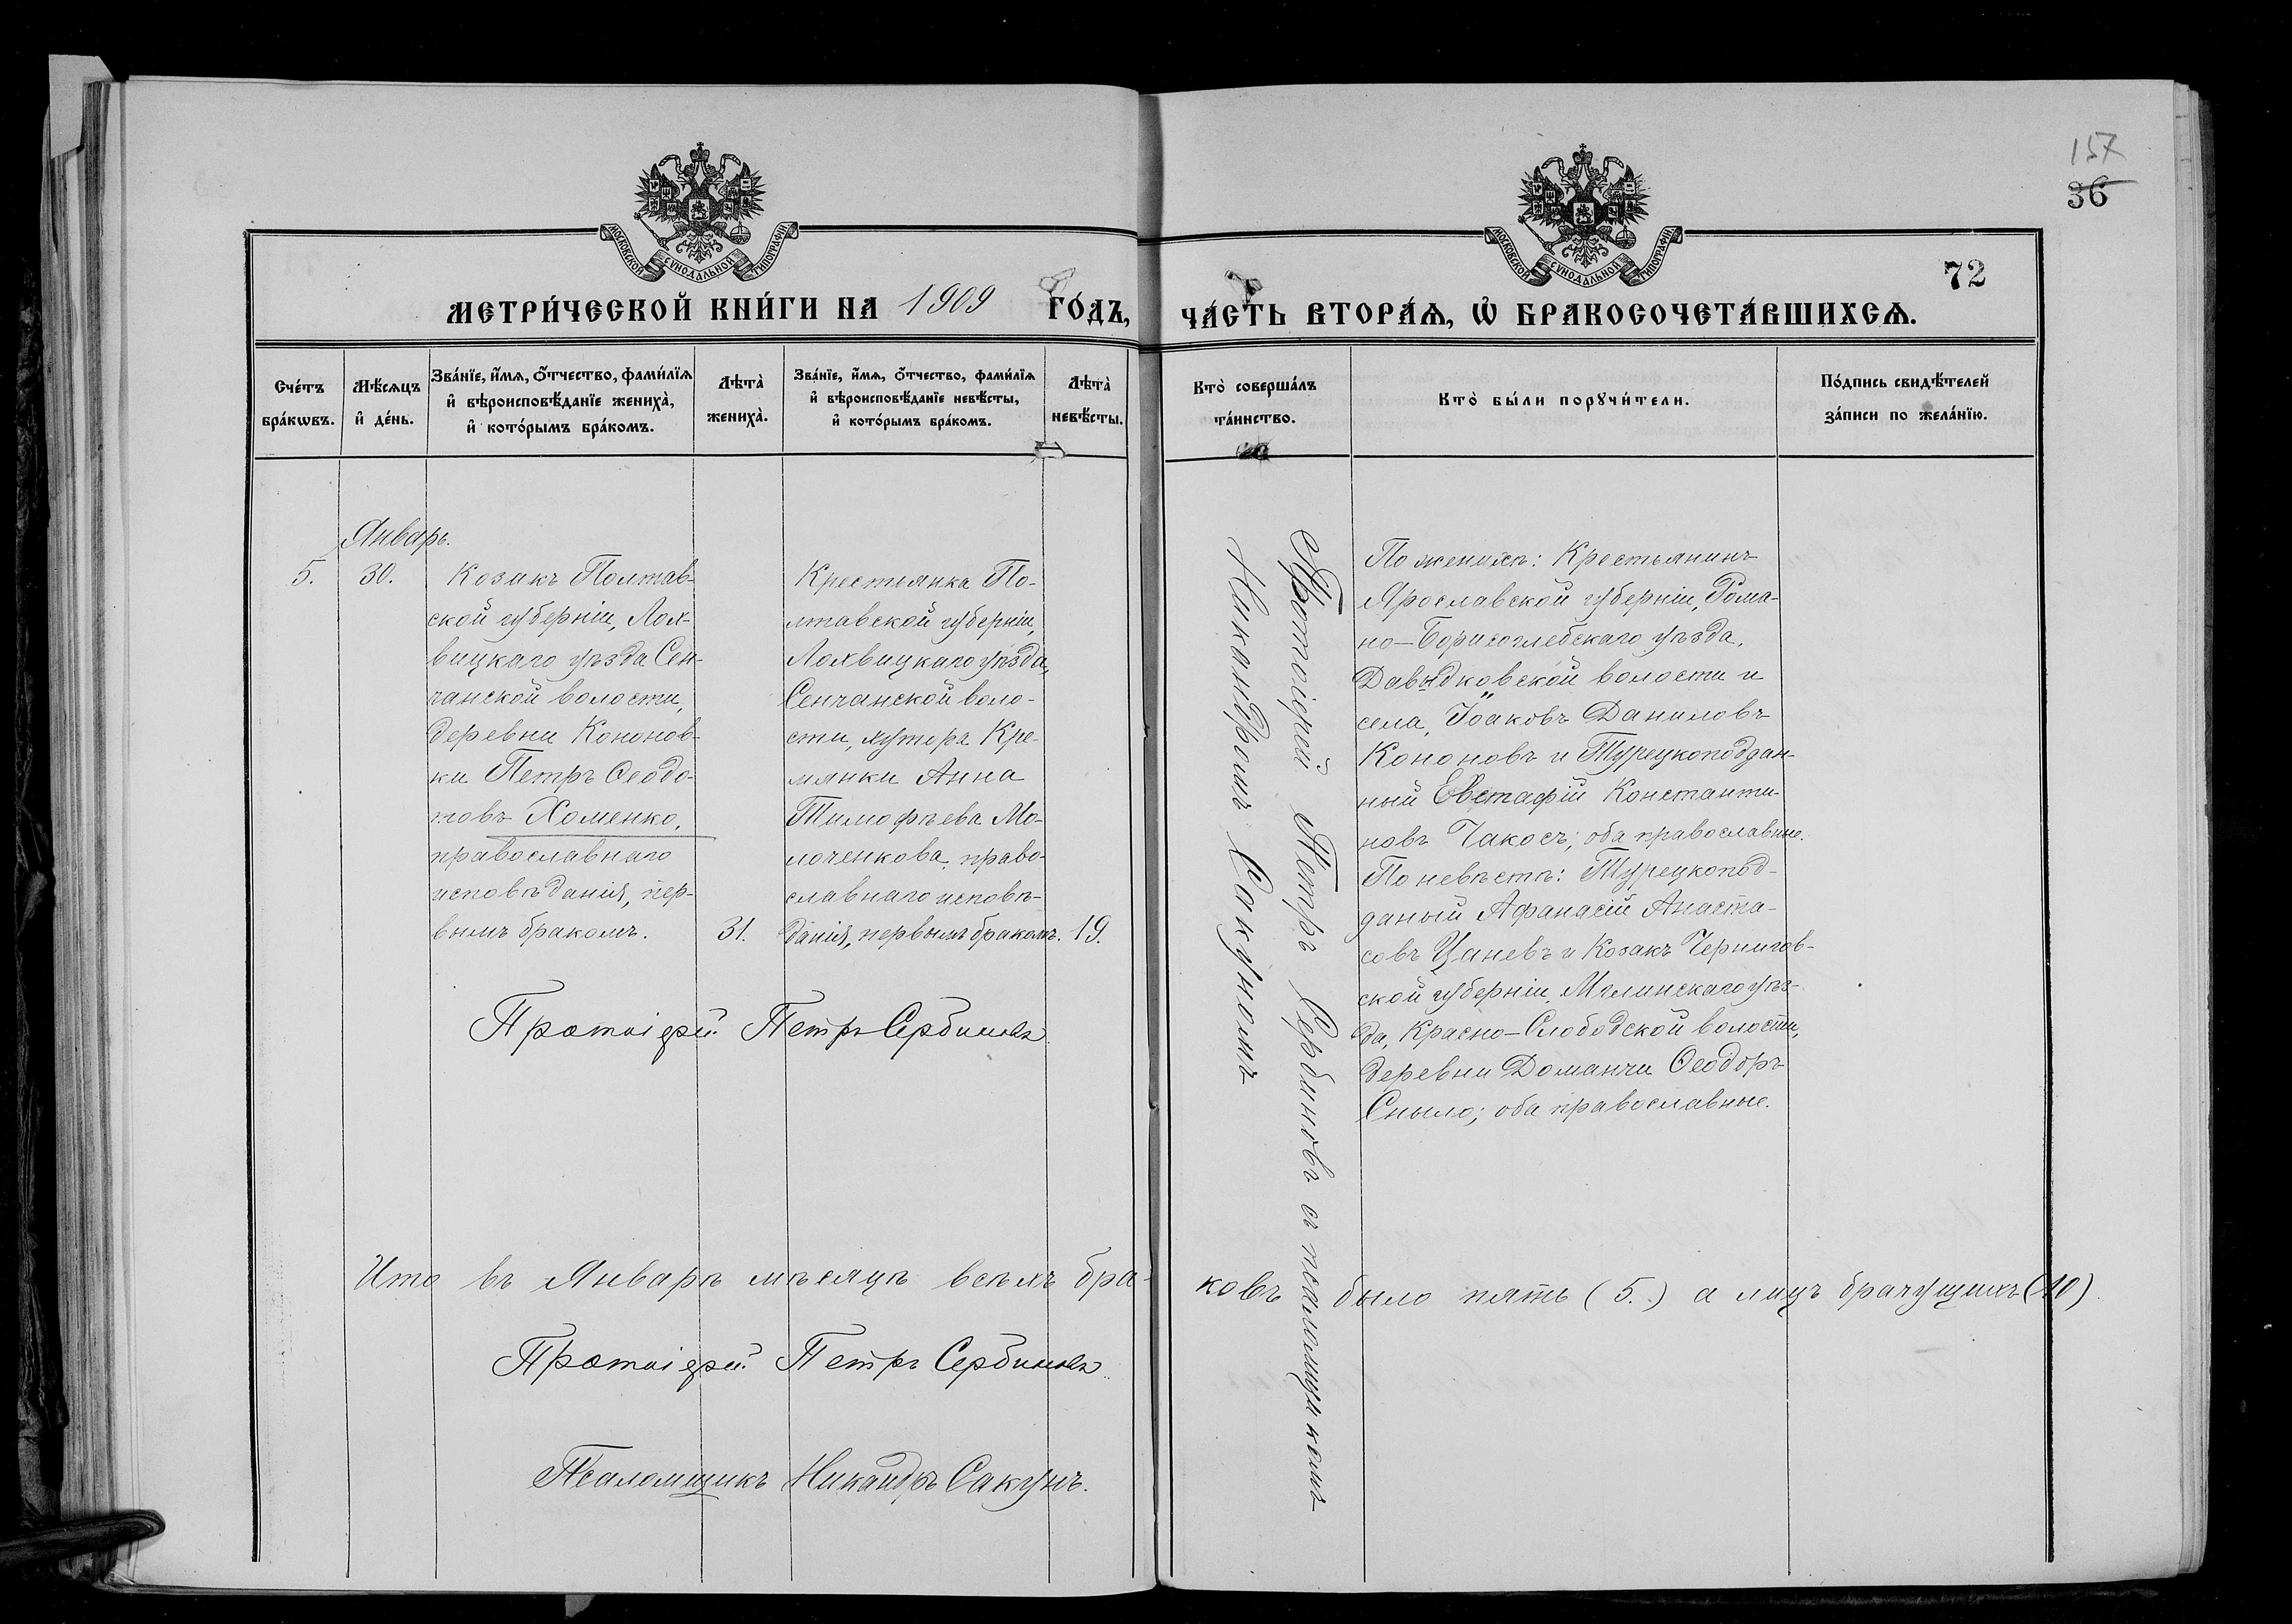 157
36
МОСКОВСКОЙ СѴНОДАЛЬНОЙ ТИПОГРАФІИ
МОСКОВСКОЙ СѴНОДАЛЬНОЙ ТИПОГРАФІИ
72
МЕТРИ́ЧЕСКОЙ КНИ́ГИ НА 1909 ГО́ДЪ, ЧА́СТЬ ВТОРА́Ѧ, Ѡ҆ БРАКОСОЧЕТА́ВШИХСѦ.
Сче́тъ
бра́кѡвъ.
Мѣ́сѧцъ
и҆ де́нь.
Зва́нїе, и҆́мѧ, ѻ҆́тчество, фами́лїѧ
и҆ вѣроисповѣ́данїе жениха̀,
и҆ кото́рымъ бра́комъ.
Лѣта̀
жениха̀.
Зва́нїе, и҆́мѧ, ѻ҆́тчество, фами́лїѧ
и҆ вѣроисповѣ́данїе невѣ́сты,
и҆ кото́рымъ бра́комъ.
Лѣта̀
невѣ́сты.
Кто̀ соверша́лъ
та́инство.
Кто̀ бы́ли порꙋчи́тели.
По́дпись свидѣ́телей
за́писи по жела́нїю.
Январь.
5.
30.
Козакъ Полтав-
ской губерніи, Лох-
вицкаго уѣзда Сен-
чанской волости,
деревни Кононов-
ки Петръ Ѳеодо-
товъ Хоменко,
православнаго
исповѣданія, пер-
вымъ бракомъ.
31.
Крестьянка По-
лтавской губерніи,
Лохвицкаго уѣзда,
Сенчанской воло-
сти, хутора Кре-
мянки Анна
Тимофѣева Мо-
лоченкова, право-
славнаго исповѣ-
данія, первымъ бракомъ.
19.
Протоіерей Петръ Сербиновъ съ псаломщикомъ
Никандромъ Сакуномъ
По женихѣ: Крестьянинъ
Ярославской губерніи, Рома-
но-Борисоглебскаго уѣзда,
Давыдковской волости и
села, Іоаковъ Даниловъ
Кононовъ и Турецкоподдан-
ный Евстафій Константи-
новъ Чакосъ; оба православные.
По невѣстѣ: Турецкопод-
даный Афанасій Анаста-
совъ Цаневъ и Козакъ Чернигов-
ской губерніи, Мглинскаго уѣз-
да, Красно-Слободской волости,
деревни Доманчи Ѳеодоръ
Сныло; оба православные.
Протоіерей Петръ Сербиновъ
Ито въ Январѣ мѣсяцѣ всѣхъ бра-
ковъ было пять (5.) а лицъ брачущихъ (10)
Протоіерей Петръ Сербиновъ
Псаломщикъ Никандръ Сакунъ.